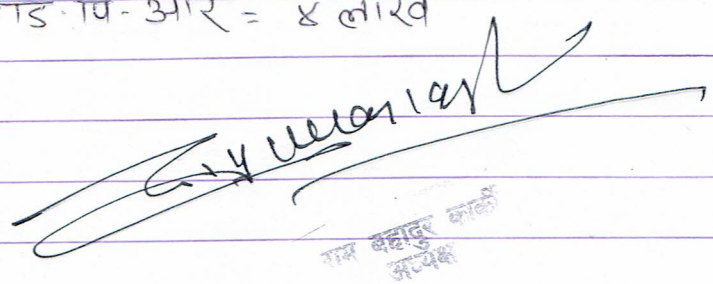 डि.पि.आर = ४ लाख
राम बहादुर कार्की
अध्यक्ष